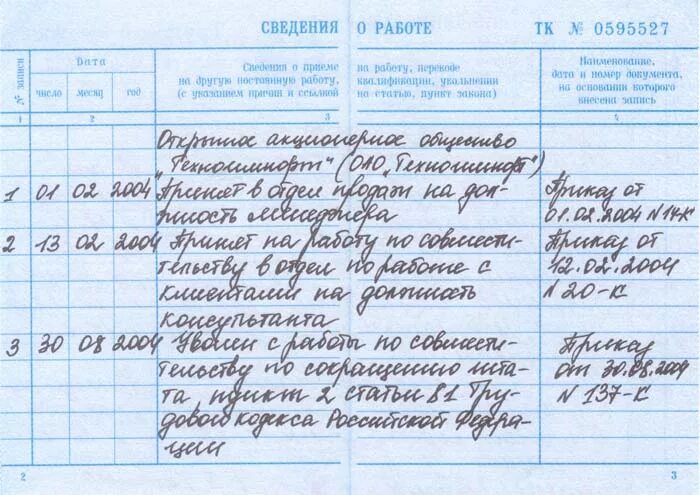 СВЕДЕНИЯ О РАБОТЕ ТК № 0595527
№ записи
Дата
число месяц год
Сведения о приеме на работу, переводе
на другую постоянную работу, квалификации, увольнении
(с указанием причин и ссылкой на статью, пункт закона)
Наименование,
дата и номер документа,
на основании которого
внесена запись
1 2 3 4
Открытое акционерное общество
„Техносимпорт" (ОАО „Техносимпорт")
1 01 02 2004 Принят в отдел продаж на дол- Приказ от
жность менеджера 01.02.2004 N14-к
2 13 02 2004 Принят на работу по совмести- Приказ от
тельству в отдел по работе с 12.02.2004
клиентами на должность N 20-к
консультанта
3 30 08 2004 Уволен с работы по совмести- Приказ
тельству по сокращению шта- от 30.08.2004
та, пункт 2 статьи 81 Тру- N 137-к
дового кодекса Российской Федера-
ции
2 3